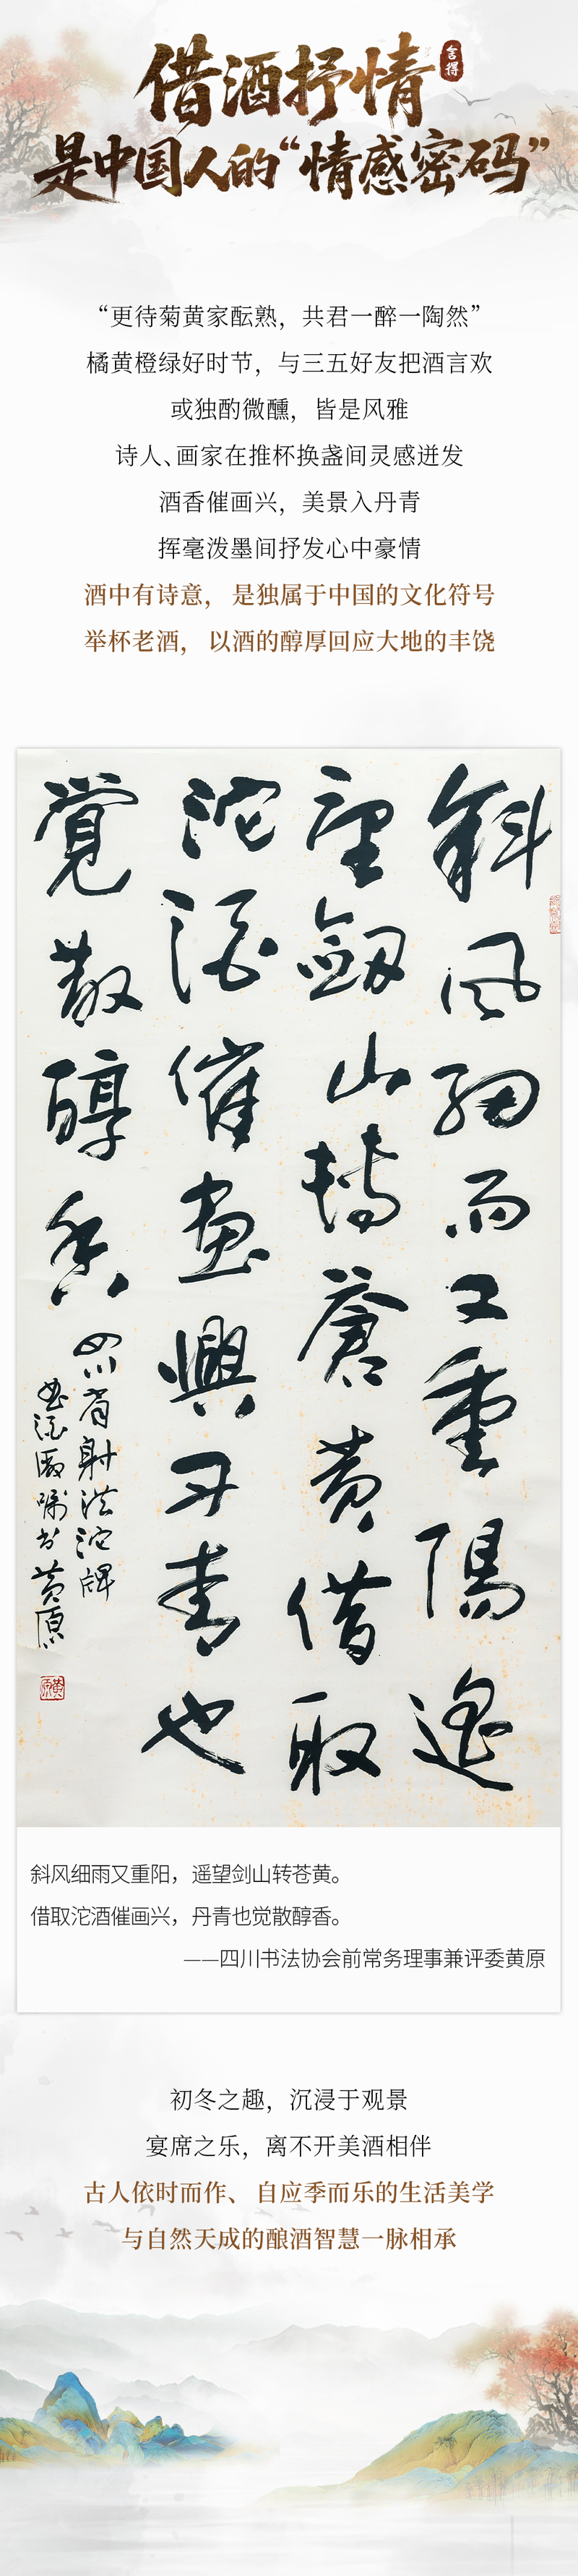 借酒抒情
舍得
是中国人的“情感密码”
“更待菊黄家酝熟，共君一醉一陶然”
橘黄橙绿好时节，与三五好友把酒言欢
或独酌微醺，皆是风雅
诗人、画家在推杯换盏间灵感迸发
酒香催画兴，美景入丹青
挥毫泼墨间抒发心中豪情
酒中有诗意，是独属于中国的文化符号
举杯老酒，以酒的醇厚回应大地的丰饶
斜风细雨又重陽遙
望劔山转蒼黄借取
沱酒催畫興丹青也
覺散醇香
四川省射洪沱牌
曲酒廠嘱书黄原
斜风细雨又重阳，遥望剑山转苍黄。
借取沱酒催画兴，丹青也觉散醇香。
——四川书法协会前常务理事兼评委黄原
初冬之趣，沉浸于观景
宴席之乐，离不开美酒相伴
古人依时而作、自应季而乐的生活美学
与自然天成的酿酒智慧一脉相承